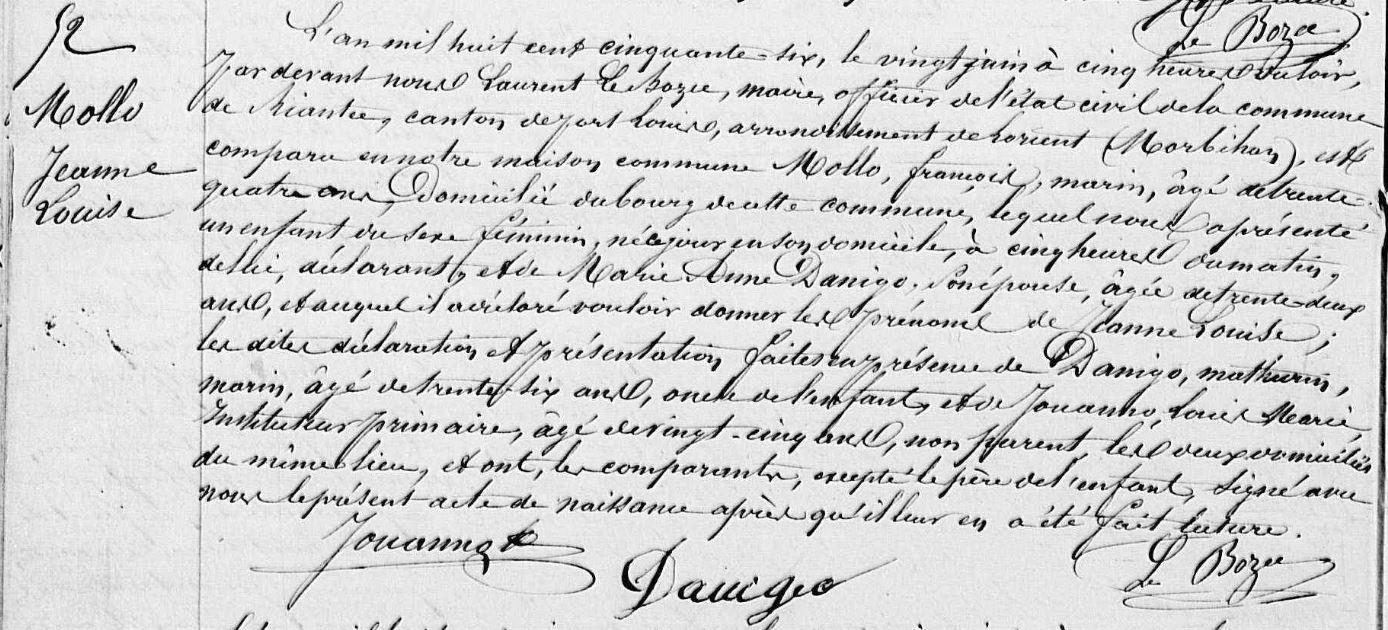 Le Bozec
52
Mollo
Jeanne
Louise
L'an mil huit cent cinquante-six, le vingt juin à cinq heures du soir,
Par devant nous Laurent Le Bozec, maire, officier de l'état civil de la commune
de Riantec, canton de port Louis, arrondissement de Lorient (Morbihan), est
comparu en notre maison commune Mollo, françois, marin, âgé de trente-
quatre ans, Domicilié du bourg de cette commune, lequel nous a présenté
un enfant du sexe féminin, né ce jour en son domicile, à cinq heures du matin,
de lui, déclarant, et de Marie Anne Danigo, son épouse, âgée de trente-deux
ans, et auquel il a déclaré vouloir donner les prénoms de Jeanne Louise;
les dites déclaration et présentation faites en présence de Danigo, mathurin,
marin, âgé de trente-six ans, oncle de l'enfant, et de Jouanno, Louis Marie,
Instituteur primaire, âgé de vingt-cinq ans, non parent, les deux domiciliés
du même lieu, et ont, les comparants, excepté le père de l'enfant, signé avec
nous le présent acte de naissance après qu'il leur en a été fait lecture.
Jouanno
Danigo
Le Bozec